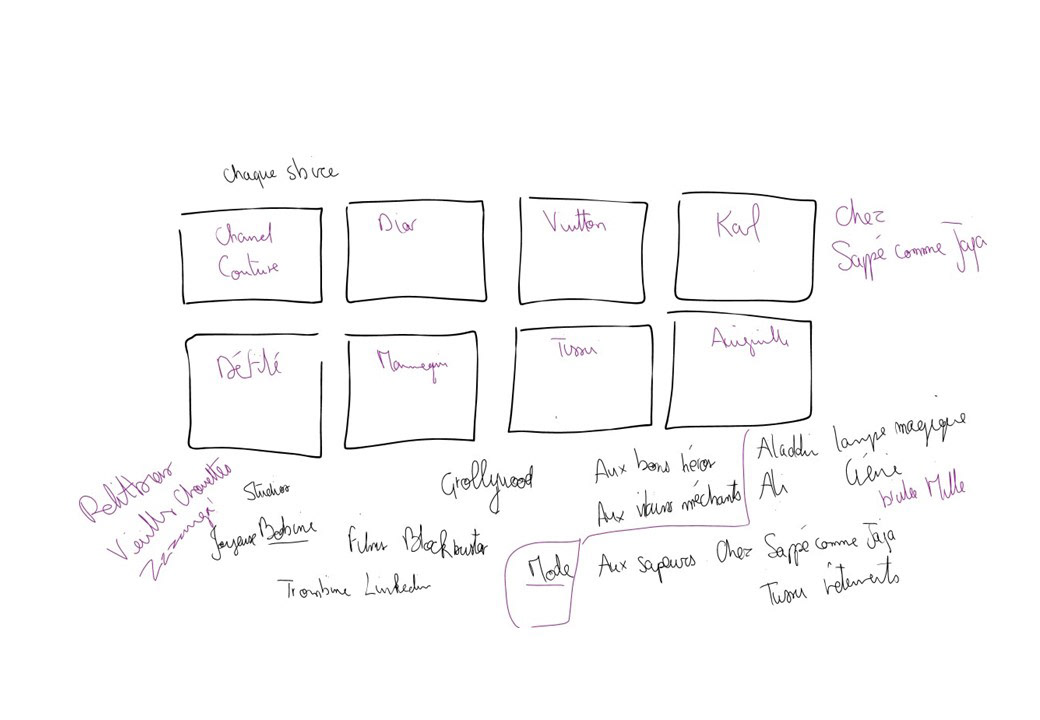 chaque sbire
Chanel
Couture
Dior
Vuitton
Karl
Chez
Sappé comme Jaja
Défilé
Mannequin
Tissu
Aiguille
Vieilles Chouettes
Studios
Joyeuse Bobine
Films Blockbuster
Trombine Linkedin
Grollywood
Aux bons héros
Aux vilains méchants
Mode
Aux sapeurs Chez Sappé comme Jaja
Tissu vêtements
Aladdin lampe magique
Ali Génie
Mille